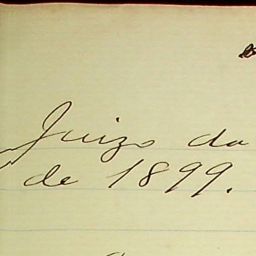 Juizo da
de 1899.